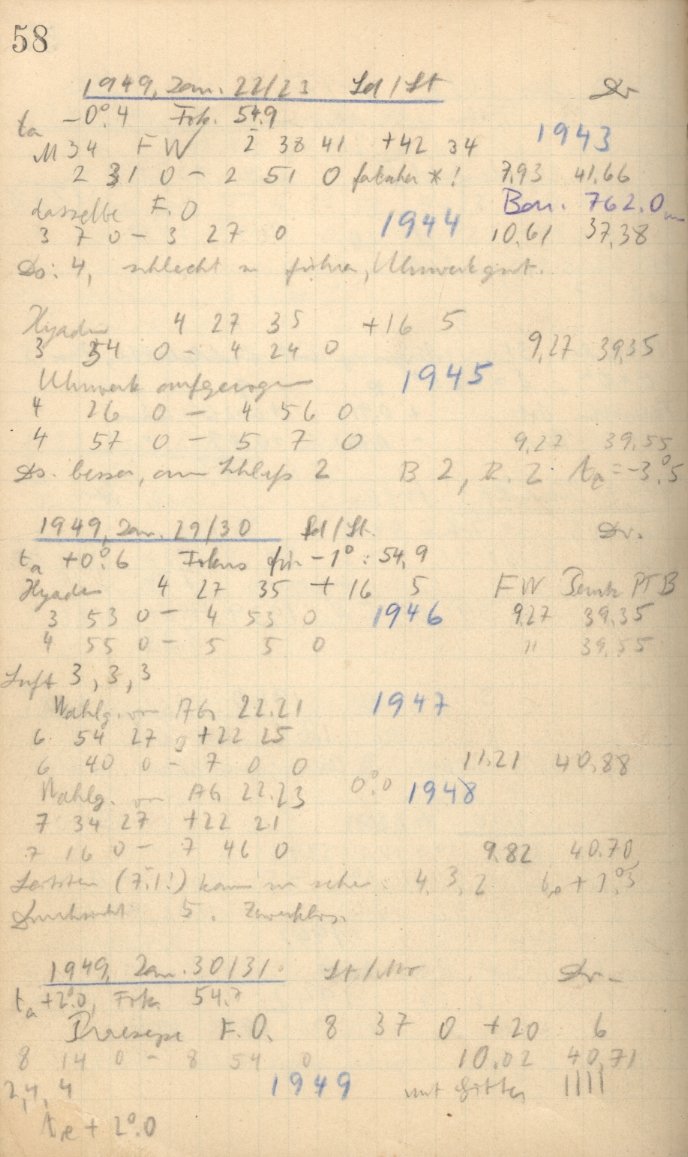 58
1949, Jan. 22/23 Sd/St Dr
ta -0°.4 Fok. 54.9
M 34 FW 2 38 41 +42 34 1943
2 31 0 - 2 51 0 *! 7,93 41,66
dasselbe F. O Bar. 762.0
3 7 0 - 3 27 0 1944 10,61 37,38
Ds: 4, schlecht zu führen, Uhrwerk gut.
Hyaden 4 27 35 +16 5
3 54 0 - 4 24 0 9,27 39,35
Uhrwerk aufgezogen 1945
4 26 0 - 4 56 0
4 57 0 - 5 7 0 9,27 39,55
Ds. besser, am Schluss 2 B 2, R. 2 te = -3°.5
1949, Jan. 29/30 Sd/St. Dr.
ta +0°.6 Fokus für -1°: 54,9
Hyaden 4 27 35 + 16 5 FW PTB
3 53 0 - 4 53 0 1946 9,27 39,35
4 55 0 - 5 5 0 " 39,55
Luft 3, 3, 3
AG 22.21 1947
6 54 27 +22 25
6 40 0 - 7 0 0 11,21 40,88
AG 22.23 0°.0 1948
7 34 27 +22 21
7 16 0 - 7 46 0 9.82 40.70
(7.1!) kaum zu sehen 4, 3, 2 te + 1°.5
Durchsicht 5. Zwecklos.
1949, Jan. 30/31. St/ Dr.
ta +2°.0, Fok. 54.7
Praesepe F. O. 8 37 0 +20 6
8 14 0 - 8 54 0 10,02 40,71
2, 4, 4 1949 mit Gitter ||||
te + 2°.0